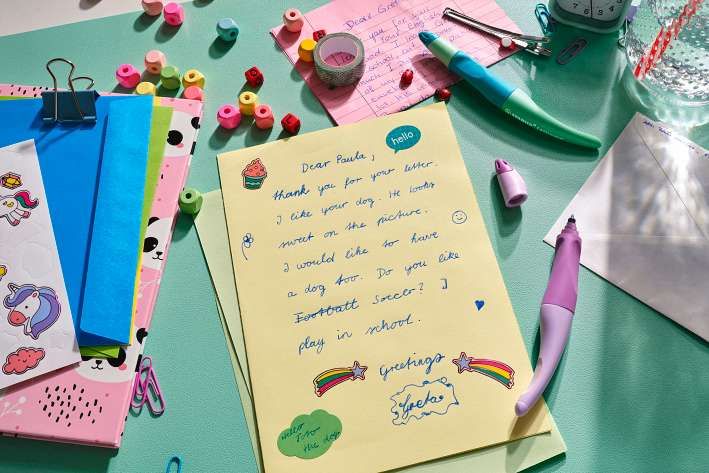 Dear Gret
you for
hello
Dear Paula,
thank you for your letter.
I like your dog. He looks
sweet on the picture.
I would like to have
a dog too. Do you like
Football Soccer? I
play in school.
Greetings
Greta
Hello
Toto
the dog